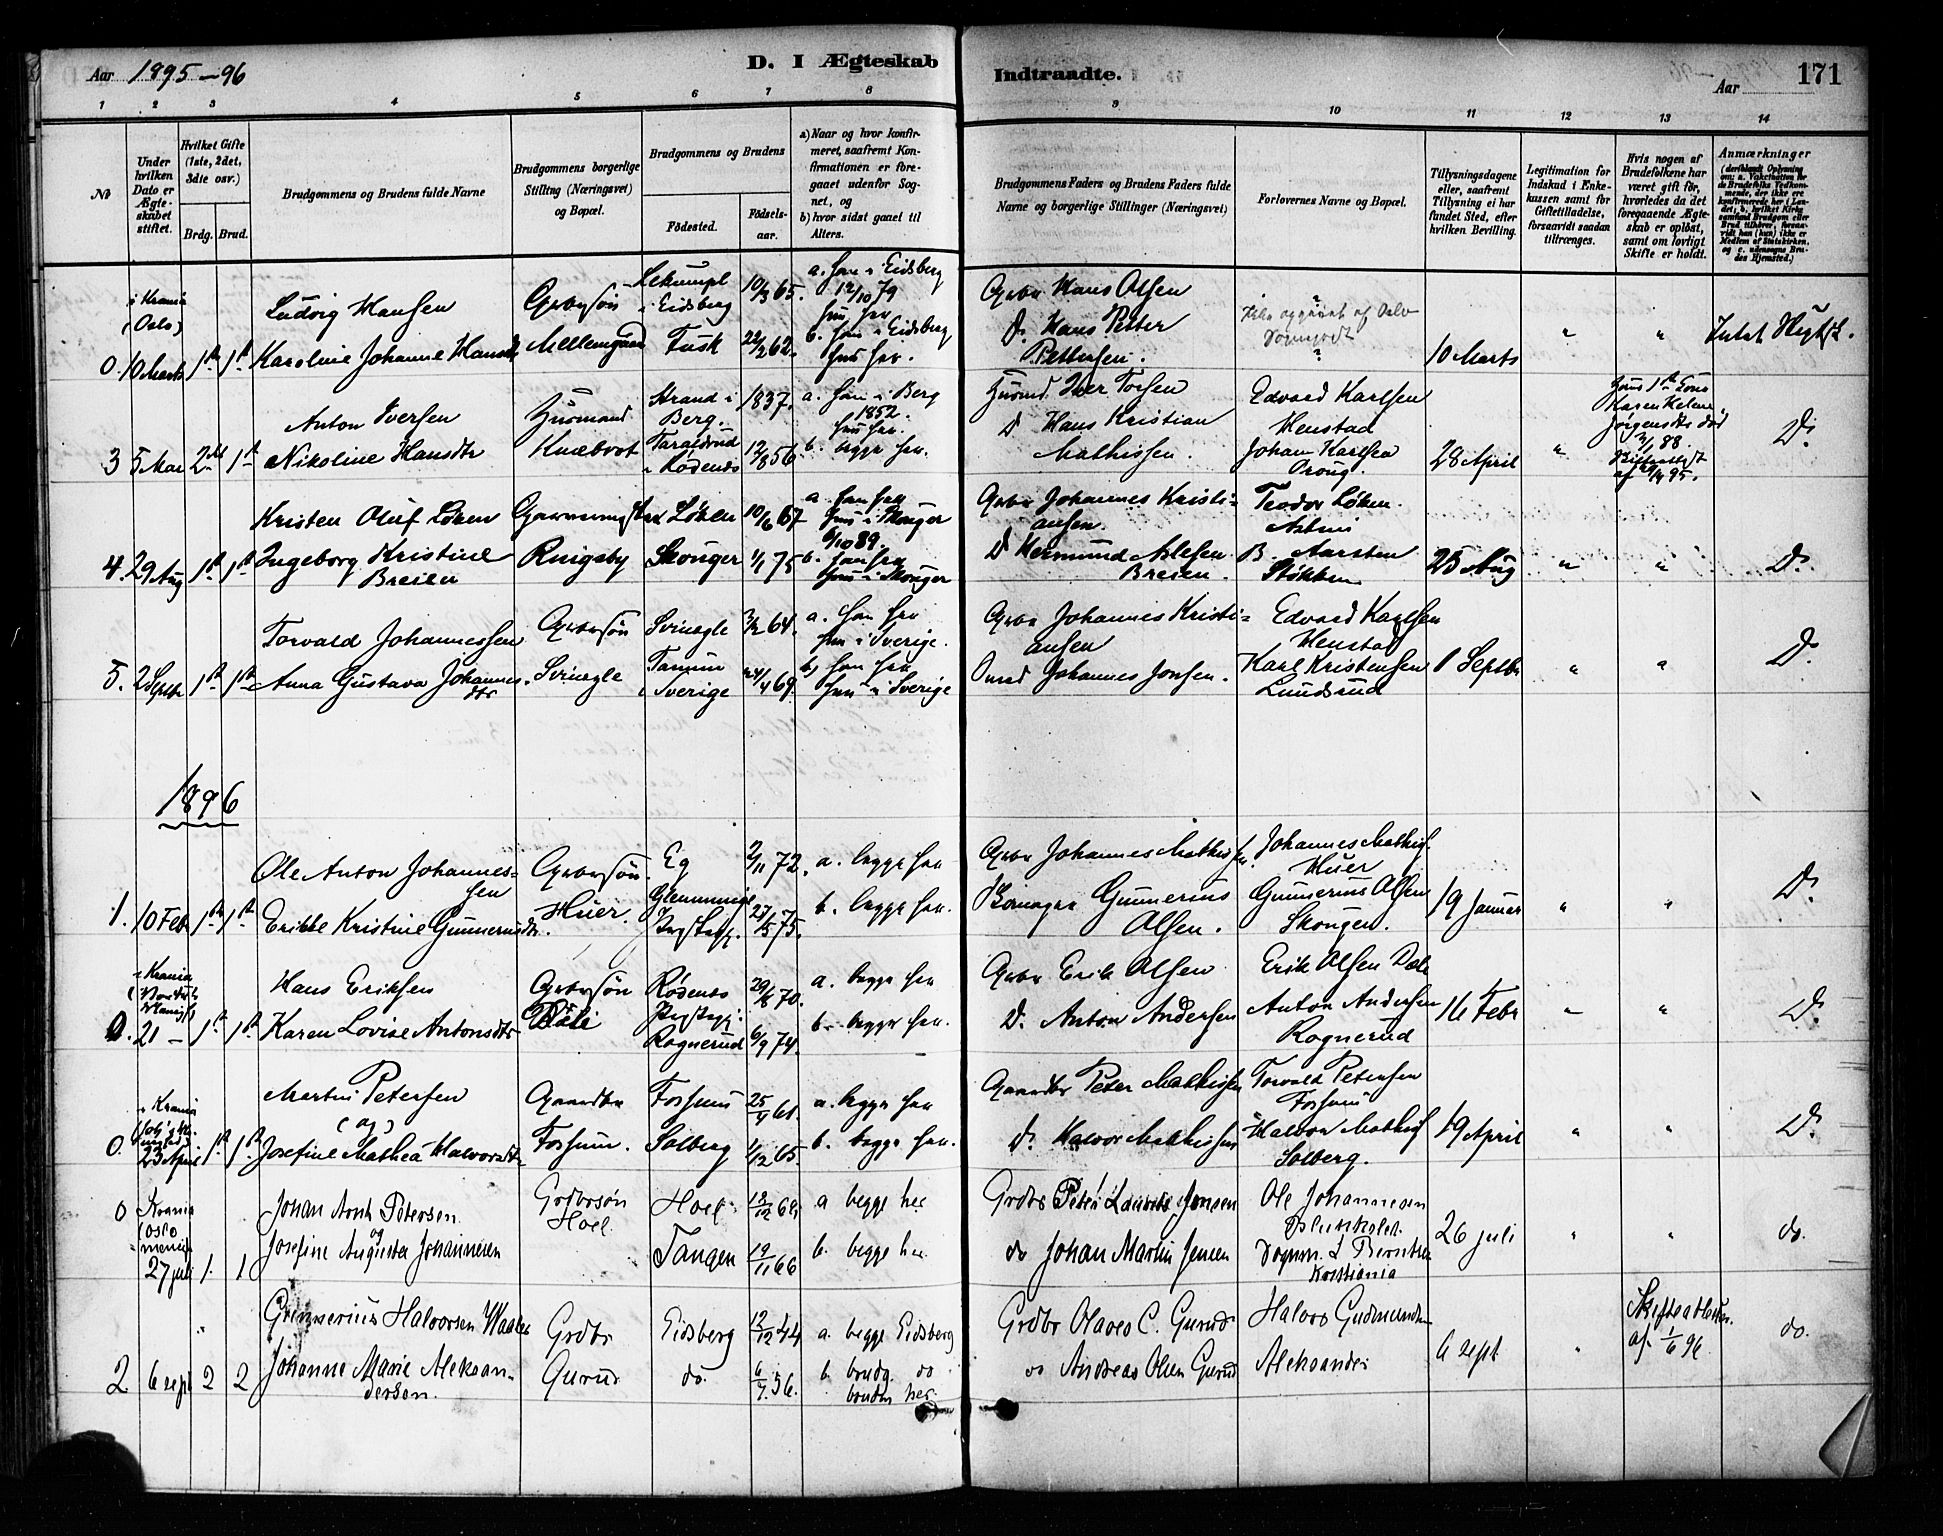 Aar 1895-96
D. I Ægteskab
Indtraadte.
Aar
171
1 2 3 4 5 6 7 8
9 10 11 12 13 14
No
Under hvilken Dato er Ægteskabet stiftet.
Hvilket Gifte (1ste, 2det, 3die osv.)
Brdg. Brud.
Brudgommens og Brudens fulde Navne
Brudgommens borgerlige Stilling (Næringsvei) og Bopæl.
Brudgommens og Brudens
Födested.
Födsels-aar.
a) Naar og hvor konfirmeret, saafremt Konfirmationen er foregaaet udenfor Sognet, og
b) hvor sidst gaaet til Alters.
Brudgommens Faders og Brudens Faders fulde Navne og borgerlige Stillinger (Næringsvei)
Forlovernes Navne og Bopæl.
Tillysningsdagene eller, saafremt Tillysning ei har fundet Sted, efter hvilken Bevilling.
Legitimation for Indskud i Enkekassen samt for Giftetilladelse, forsaavidt saadan tiltrænges.
Hvis nogen af Brudefolkene har været gift för, hvorledes da det foregaaende Ægteskab er oplöst, samt om lovligt Skifte er holdt.
Anmærkninger
i Krania (Oslo)
0. 10 Marts 1ste 1ste
Ludvig Hansen
Karoline Johanne Hansdtr
Grbrsön
i Eidsberg
Tusk
10/3 65.
22/2 62.
a. han i Eidsberg 12/10 79
hun her
b. han i Eidsberg
hun her.
Grbr Hans Olsen
Do Hans Petter Pettersen.
10 Marts
" "
Intet
3 5 Mai 2det 1ste
Anton Iversen
Nikoline Hansdtr
Husmand
Strand i Berg.
Taraldrud i Rödenes
1837.
12/8 56.
a. han i Berg 1852.
hun her.
b. begge her.
Husmd Iver Torsen
Do Hans Kristian Mathissen.
Edvard Karlsen Henstad
Johan Karlsen
28 April
"
Jörgensdtr död
2/1 88.
Do
4. 29 Aug 1ste 1ste
Kristen Oluf Löken
Ingeborg Kristine Breien
Ringsby
Löken
Skouger
10/6 67
1/1 75
a. han her
hun i Skouger
6/10 89.
b. han her
hun i Skouger
Grbr Johannes Kristiansen.
Do Hermund Aslesen Breien.
Teodor Löken.
B. Aarsten Stokken
25 Aug
" "
Do
5. 2 Septbr 1ste 1ste
Torvald Johannessen
Anna Gustava Johannesdtr
Grbrsön
Svinegle
Svinegle
Tannum i Sverige
3/2 64.
24/4 69.
a. han her
hun i Sverige.
b) han her
hun i Sverige
Grbr Johannes Kristiansen
Johannes Jonsen.
Edvard Karlsen Henstad
Karl Kristensen Lundsrud
1 Septbr
" "
Do
1896
1. 10 Febr 1ste 1ste
Ole Anton Johannessen
Erikke Kristine Gunneriusdtr.
Grbrsön.
Huer.
Eg
2/11 72.
27/5 75.
a. begge her
b. begge her.
Grbr Johannes Mathis.
Gunnerius Olsen.
Johannes Mathis. Huer
Gunnerius Olsen Skougen.
19 Januar
" "
Do
i Krania
0. 21 - 1ste 1ste
Hans Eriksen
Karen Lovise Antonsdtr
Grbrsön
Rödenes
Rognerud
29/8 70.
6/9 74.
a. begge her
b. begge her.
Grbr Erik Olsen
Do. Anton Andersen
Erik Olsen Dæli
Anton Andersen Rognerud
16 Febr
" "
Do
i Krania
0. 23 April 1ste 1ste
Martin Petersen
(og)
Josefine Mathea Halvorsdtr
Gaardbr
Fossum.
Fossum
Solberg
25/9 61.
1/12 65.
a. begge her
b. begge her.
Gaardbr Peter Mathissen
do. Halvor Mathissen
Torvald Petersen Fossum
Halvor Mathis Solberg.
19 April
" "
Do
0 Krania (Oslo menig
27 juli 1. 1
Johan Arnt Petersen
og
Josefine Augusta Johannesen
Grdbrsön
Hoel
Hoel
Tangen
19/11 66
a begge her
b. begge her.
Grdbr Peter Laurits Jensen
do Johan Martin Jensen
Ole Johannesen
Kristiania
26 juli
" "
do.
2 6 sept 2 2
Gunnerius Halvorsen
Johanne Marie Aleksandersen.
Grdbr
Gurud
Eidsberg
do.
12/12 44
6/7 56.
a. begge Eidsberg
b. brudg. do
bruden her.
Grdbr Olaves C. Gurud
do Andreas Olsen Gurud
Halvor
Aleksander
6 sept
"
af 1/6 96
do.